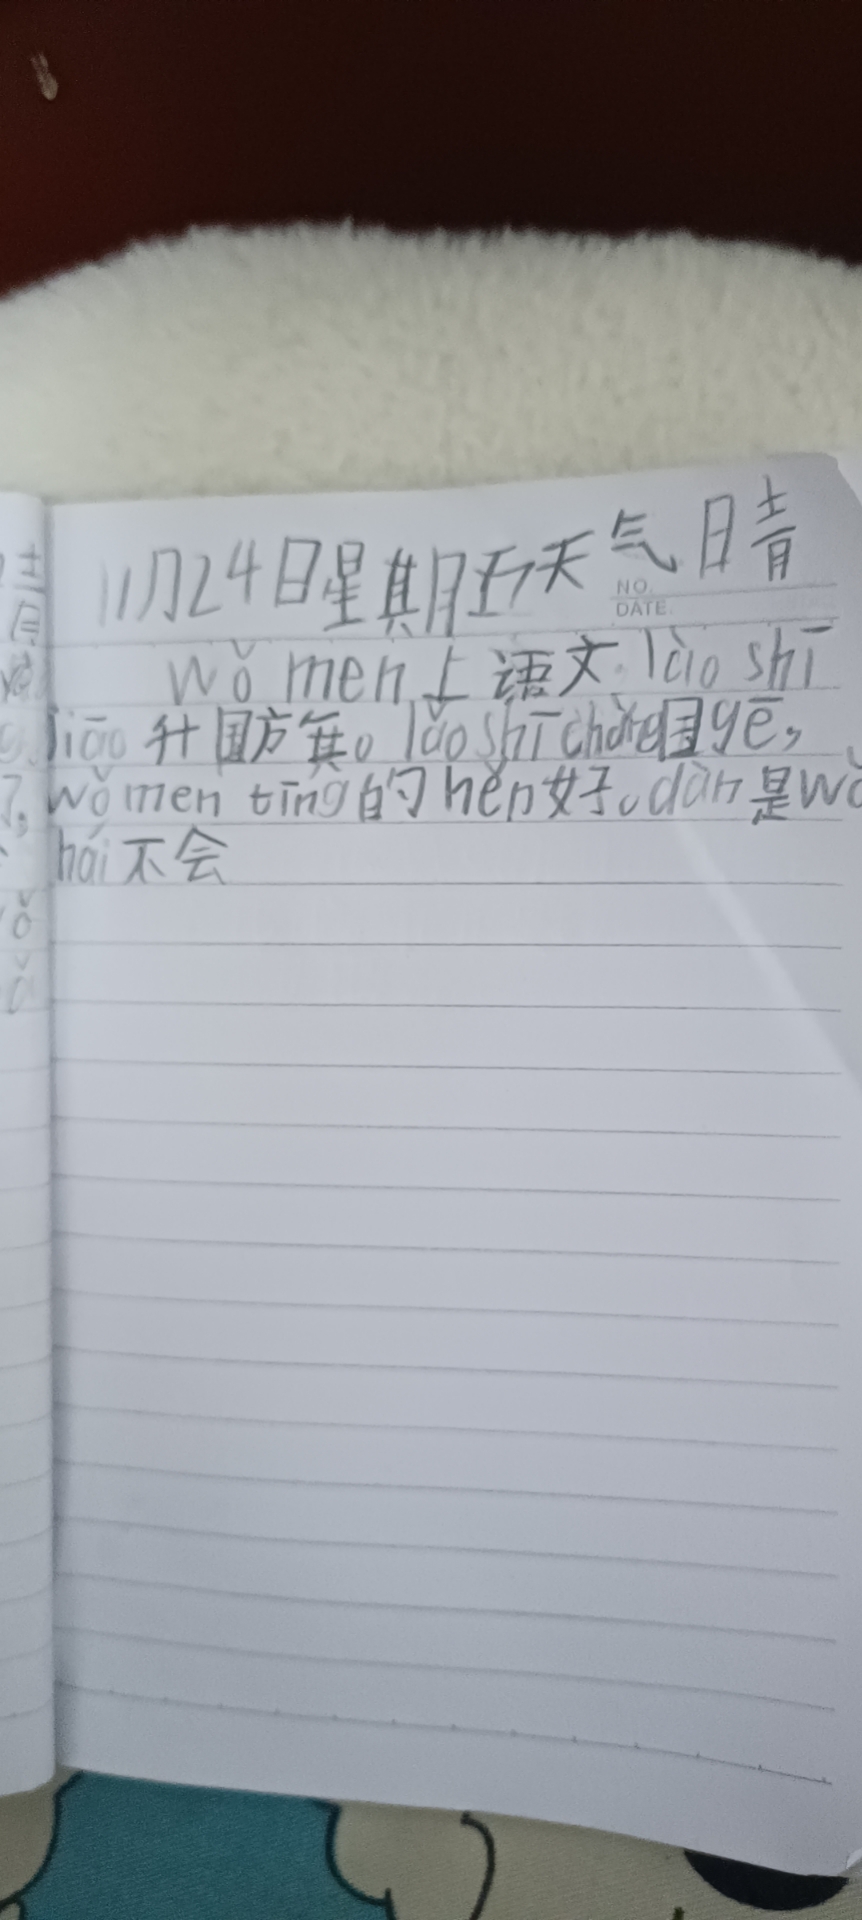 11月24日星期五天气晴
NO.
DATE.
wǒ men上语文.lǎo shī
jiāo升国旗。lǎo shī chàng国gē,
wǒ men tīng的hěn好。dàn是wǒ
hái不会